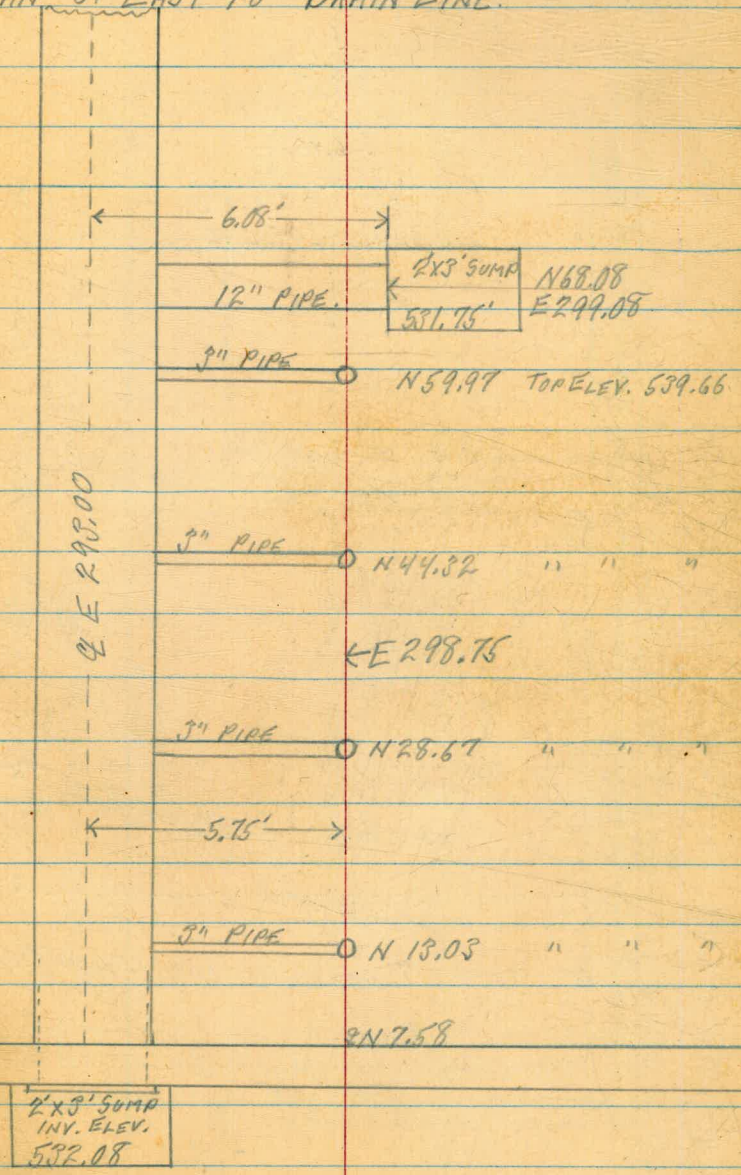 EAST TO DRAIN LINE.
6.08'
2'X3' SUMP
N68.08
12" PIPE.
531.75'
E299.08
3" PIPE
N59.97 TOP ELEV. 539.66
℄ E 293.00
3" PIPE
N44.32 " " "
←E 298.75
3" PIPE
N28.67 " " "
5.75'
3" PIPE
N 13.03 " " "
N7.58
2'X3' SUMP
INV. ELEV.
532.08